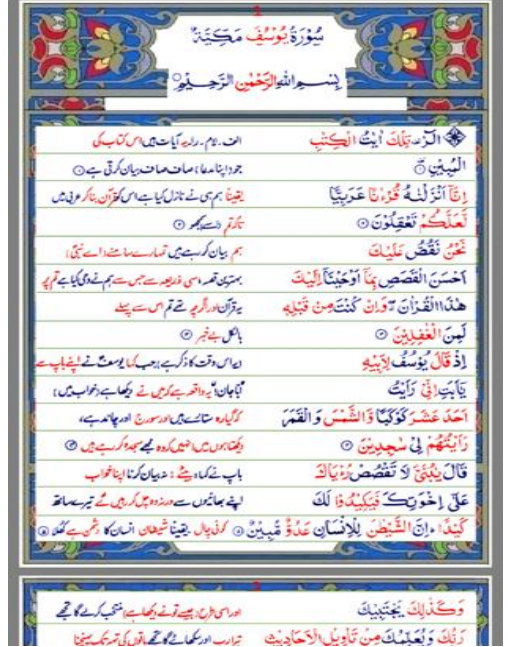 1
سُوْرَةُ يُوْسُفَ مَكِّيَّةٌ
بِسْمِ اللّٰهِ الرَّحْمٰنِ الرَّحِيْمِ
الٓرٰ ۚ تِلْكَ اٰيٰتُ الْكِتٰبِ الف۔ لام۔ را۔ یہ آیات ہیں اس کتاب کی
الْمُبِيْنِ ۝ جو (اپنا مدعا) صاف صاف بیان کرتی ہے
اِنَّاۤ اَنْزَلْنٰهُ قُرْءٰنًا عَرَبِيًّا یقیناً ہم ہی نے نازل کیا ہے اس کو قرآن بنا کر عربی میں
لَّعَلَّكُمْ تَعْقِلُوْنَ ۝ تاکہ تم (اسے) سمجھو
نَحْنُ نَقُصُّ عَلَيْكَ ہم بیان کر رہے ہیں تمہارے سامنے (اے نبی)
اَحْسَنَ الْقَصَصِ بِمَاۤ اَوْحَيْنَاۤ اِلَيْكَ بہترین قصہ، اسی ذریعہ سے جس سے ہم نے وحی کیا ہے تم پر
هٰذَا الْقُرْاٰنَ ۖ وَاِنْ كُنْتَ مِنْ قَبْلِهٖ یہ قرآن اور اگرچہ تھے تم اس سے پہلے
لَمِنَ الْغٰفِلِيْنَ ۝ بالکل بے خبر
اِذْ قَالَ يُوْسُفُ لِاَبِيْهِ (یہ اس وقت کا ذکر ہے) جب کہا یوسفؑ نے اپنے باپ سے
يٰۤاَبَتِ اِنِّيْ رَاَيْتُ اباجان! یہ واقعہ ہے کہ میں نے دیکھا ہے (خواب میں)
اَحَدَ عَشَرَ كَوْكَبًا وَّالشَّمْسَ وَالْقَمَرَ کہ گیارہ ستارے ہیں اور سورج اور چاند ہے،
رَاَيْتُهُمْ لِيْ سٰجِدِيْنَ ۝ دیکھتا ہوں میں انہیں کہ وہ مجھے سجدہ کر رہے ہیں
قَالَ يٰبُنَيَّ لَا تَقْصُصْ رُءْيَاكَ باپ نے کہا: اے بیٹے! نہ بیان کرنا اپنا خواب
عَلٰۤى اِخْوَتِكَ فَيَكِيْدُوْا لَكَ اپنے بھائیوں سے ورنہ وہ چل کر رہیں گے تیرے ساتھ
كَيْدًا ۭ اِنَّ الشَّيْطٰنَ لِلْاِنْسَانِ عَدُوٌّ مُّبِيْنٌ ۝ کوئی چال۔ یقیناً شیطان انسان کا دشمن ہے کھلا
2
وَكَذٰلِكَ يَجْتَبِيْكَ اور اسی طرح (جیسے تو نے دیکھا ہے) منتخب کرے گا تجھے
رَبُّكَ وَيُعَلِّمُكَ مِنْ تَاْوِيْلِ الْاَحَادِيْثِ تیرا رب اور سکھائے گا تجھے باتوں کی تہہ تک پہنچنا